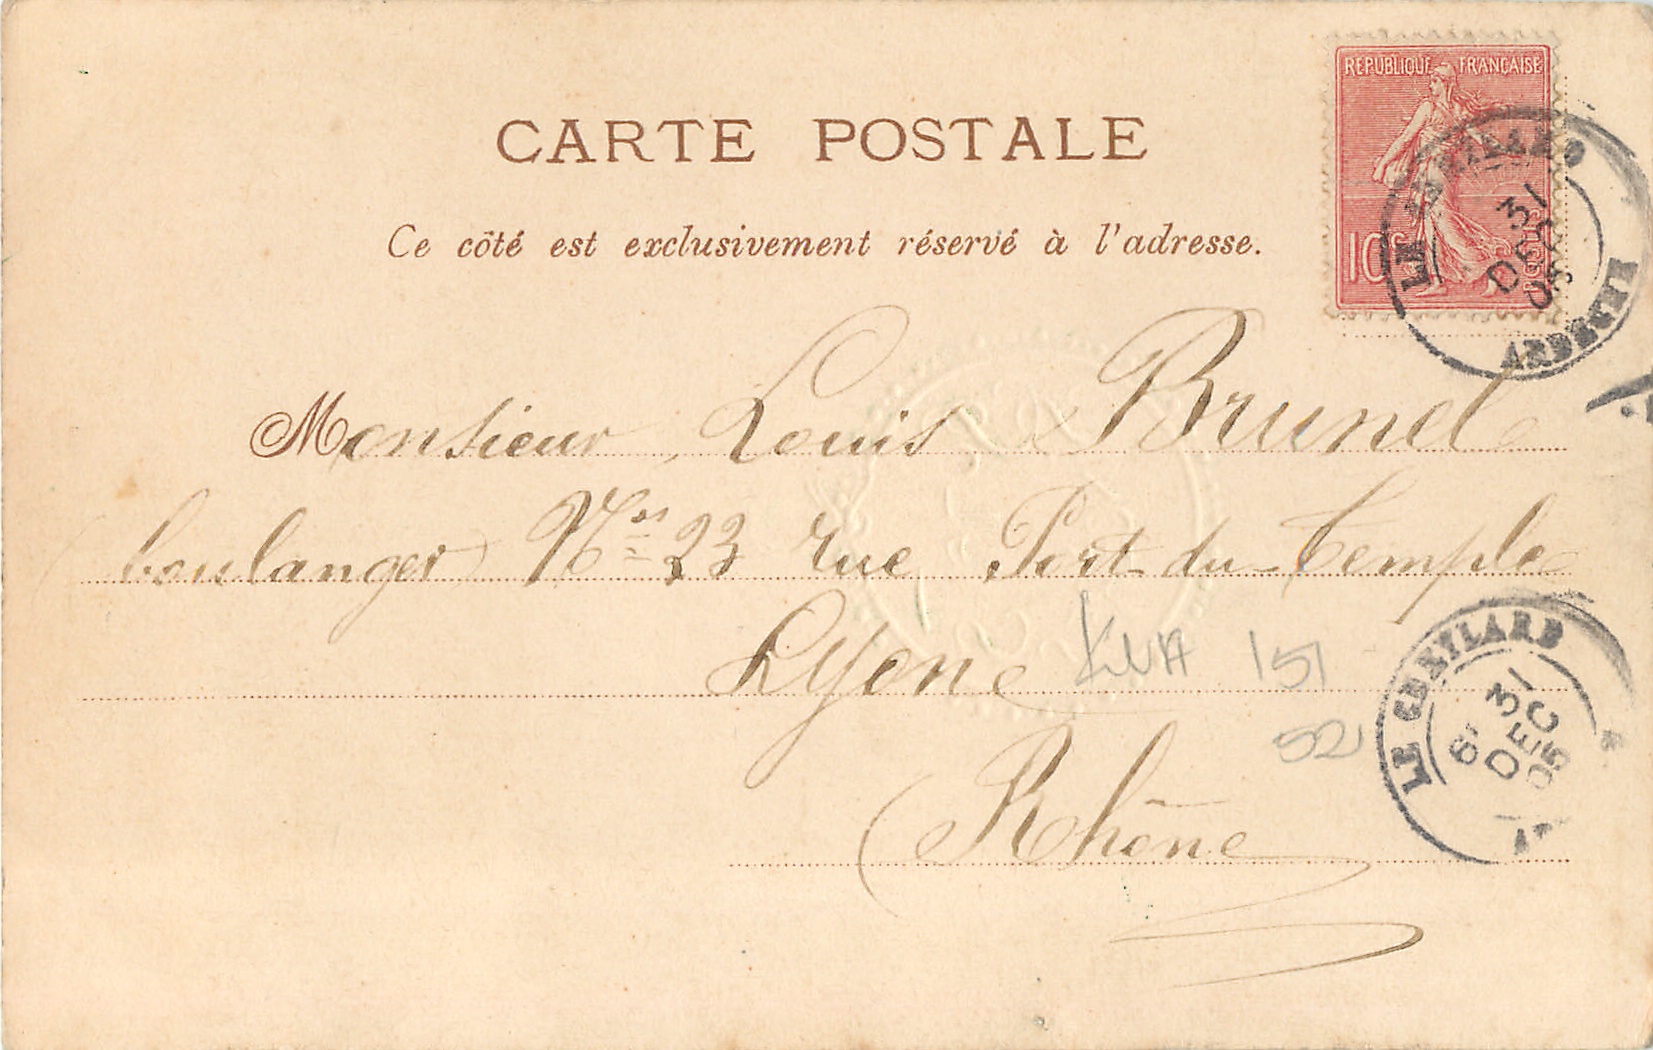 CARTE POSTALE
Ce côté est exclusivement réservé à l'adresse.
REPUBLIQUE FRANÇAISE
10c POSTES
LE CHEYLARD
31
DEC
05
ARDECHE
Monsieur Louis Brunel
boulanger Nos 23 rue Port-du-Temple
Lyon
Rhône
151
52
LE CHEYLARD
31
DEC
05